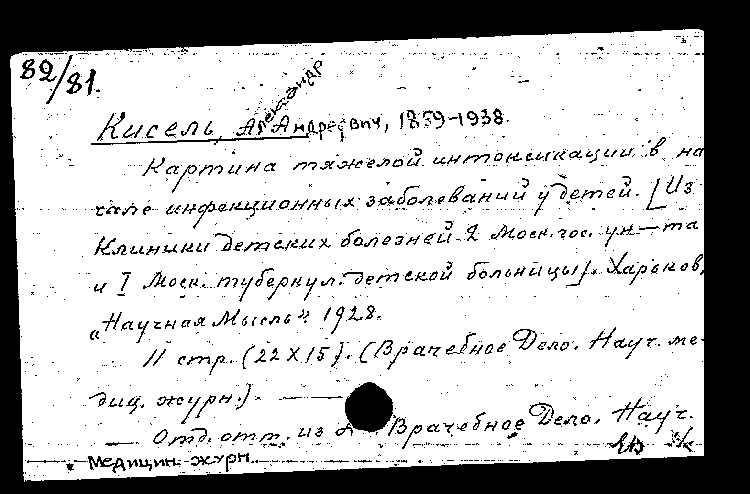 82/81.
Александр
Кисель, Ал Андреевич, 1859-1938.
Картина тяжелой интоксикации в на
чале инфекционных заболеваний у детей. [Из
Клиники детских болезней 2 Моск. гос. ун-та
и I Моск. туберкул. детской больницы]. Харьков,
„Научная Мысль". 1928.
11 стр. (22 x 15). (Врачебное Дело. Науч. ме-
диц. журн.). —
— Отд. отт. из Врачебное Дело. Науч.
Медицин. журн.